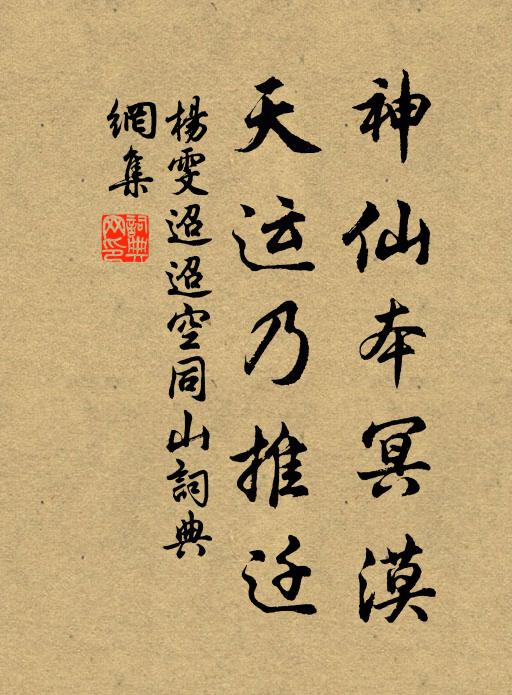 神仙本冥漠
天运乃推迁
楊雯迢迢空同山詞典
網集
詞典网印